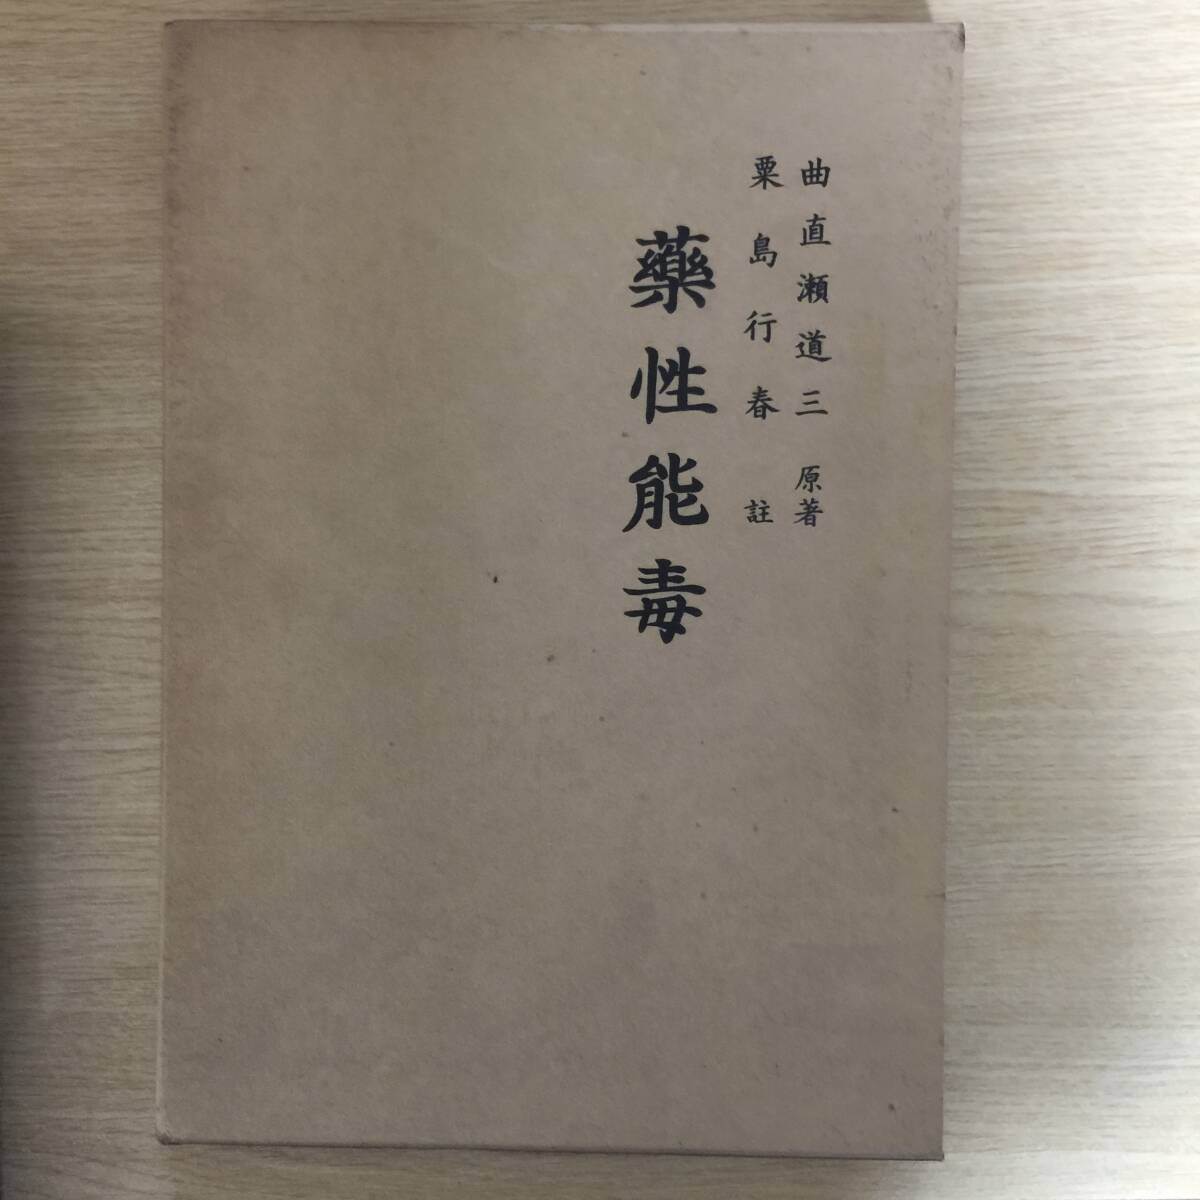 曲直瀬道三 原著
粟島行春 註
藥性能毒